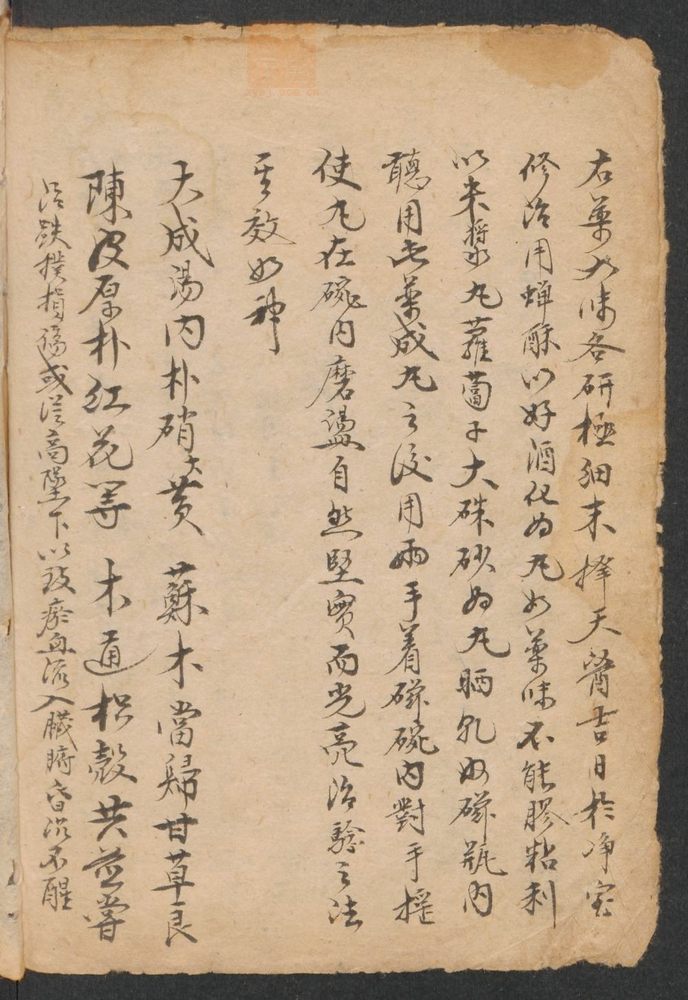 右藥六味各研極細末擇天醫吉日於净室
修治用蟬酥以好酒化为丸如藥味不能膠粘利
以米漿丸蘿蔔子大硃砂为丸晒乳收磁瓶内
聽用此藥成丸之後用兩手着磁碗内對手摇
使丸在碗内磨盪自然堅實而光亮治驗之法
其效如神
大成湯内朴硝大黄 蘇木當歸甘草良
陳皮厚朴紅花等 木通枳殼共並嘗
治跌撲損傷或從高墜下以致瘀血流入臟腑昏沉不醒